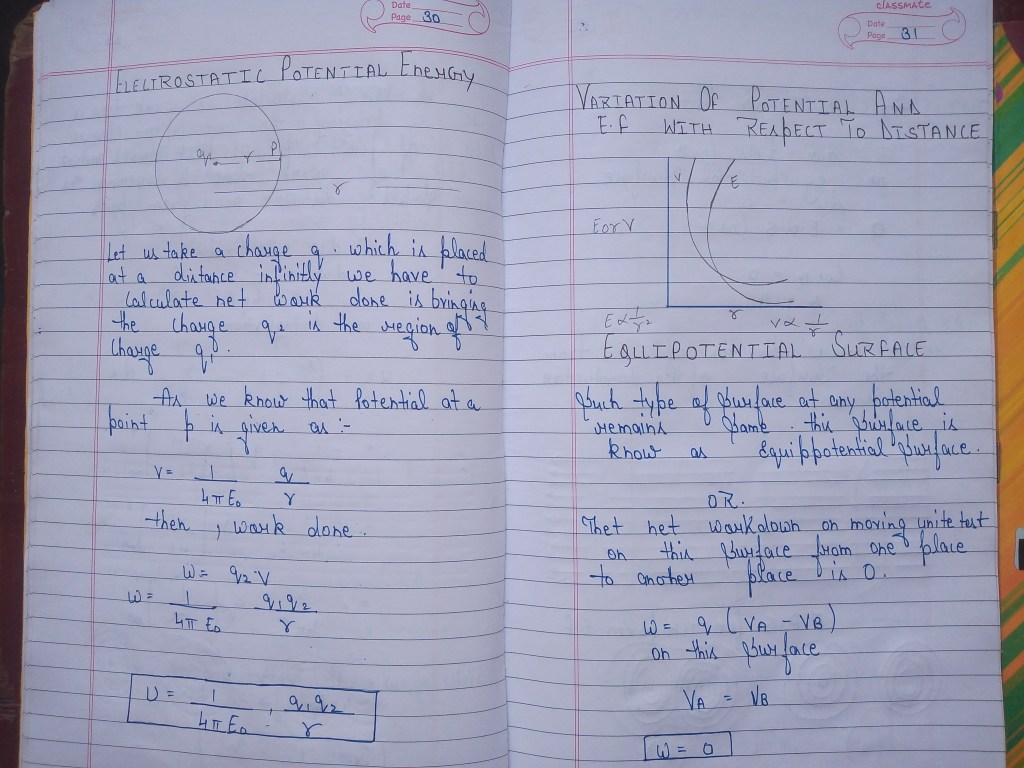 Date
Page 30
ELECTROSTATIC POTENTIAL EnerGy
q r P
r
Let us take a charge q. which is placed
at a distance infinitly we have to
Calculate net work done is bringing
the charge q2 is the region of
Charge q1.
As we know that Potential at a
point p is given as :-
V = 1/4πE0 q/r
then , work done.
W = q2.V
W = 1/4πE0 q1q2/r
U = 1/4πE0 . q1q2/r
classmate
Date
Page 31
VARIATION OF POTENTIAL AND
E.F WITH RESPECT TO DISTANCE
V E
E or V
r
E∝1/r2 V∝ 1/r
EQUIPOTENTIAL SURFACE
Such type of Surface at any potential
remains Same. this Surface is
know as Equippotential Surface.
OR.
Thet net workdown on moving unite test
on this Surface from one place
to another place is 0.
W = q (VA - VB)
on this Surface
VA = VB
W = 0